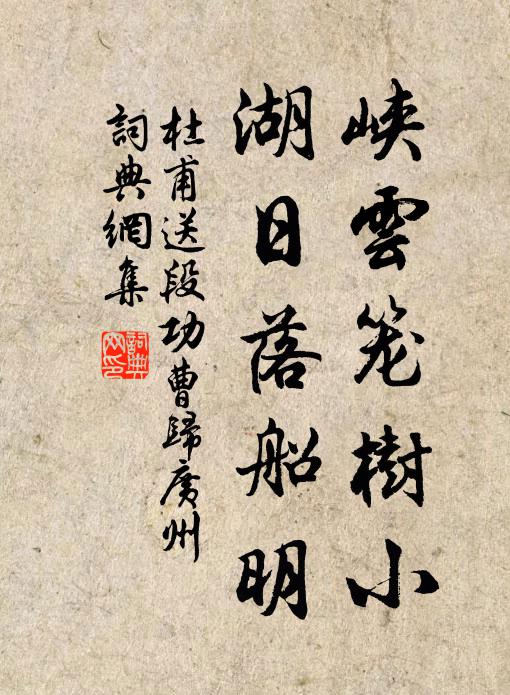 峡雲笼樹小
湖日落船明
杜甫送段功曹歸廣州
詞典網集
詞典
网印